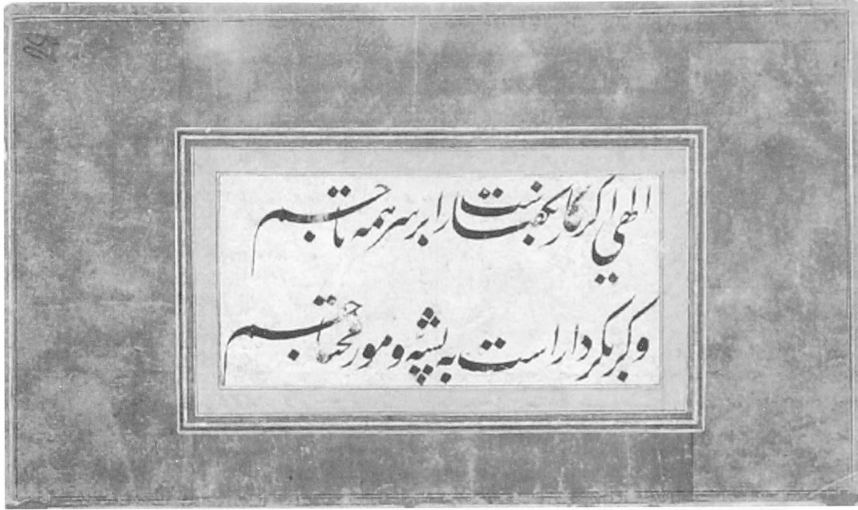 الهی اگر کار بگفتار است بر سر همه تاجم
وگر بکردار است به پشه و مور محتاجم